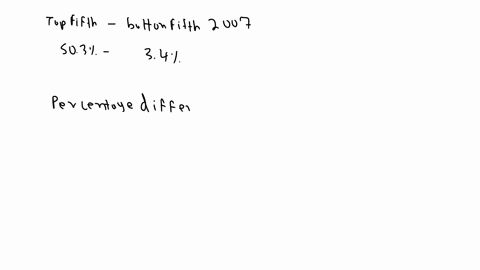 Top fifth - button fifth 2007
50.3% - 3.4%
Percentage differ